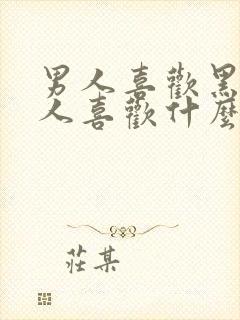 男人喜歡黑
人喜歡什麼
莊某